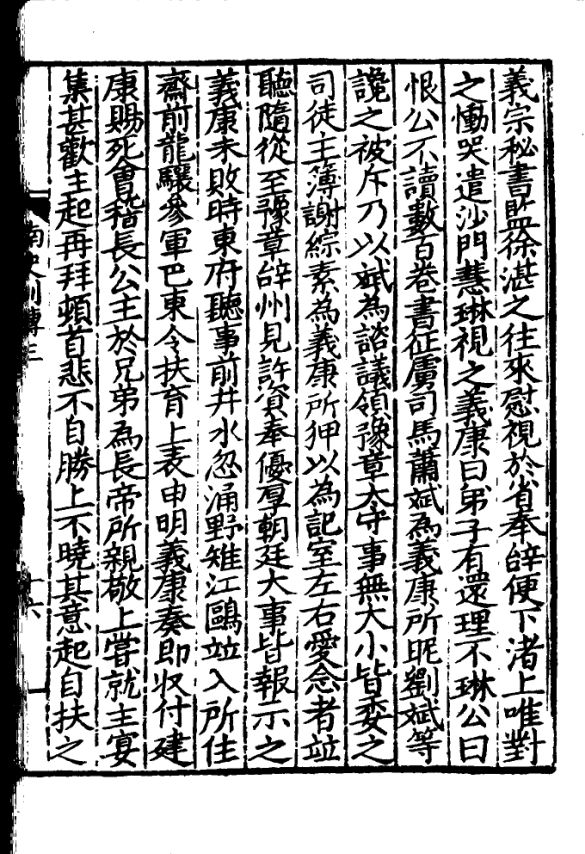 義宗秘書監徐湛之往來慰視於省奉辭便下渚上唯對
之慟哭遣沙門慧琳視之義康曰弟子有還理不琳公曰
恨公不讀數百卷書征虜司馬蕭斌為義康所昵劉斌等
讒之被斥乃以斌為諮議領豫章太守事無大小皆委之
司徒主簿謝綜素為義康所狎以為記室左右愛念者竝
聽隨從至豫章辭州見許資奉優厚朝廷大事皆報示之
義康未敗時東府聽事前井水忽涌野雉江鷗竝入所住
齋前龍驤參軍巴東令扶育上表申明義康奏即收付建
康賜死會稽長公主於兄弟為長帝所親敬上嘗就主宴
集甚歡主起再拜頓首悲不自勝上不曉其意起自扶之
南史列傳三
十六